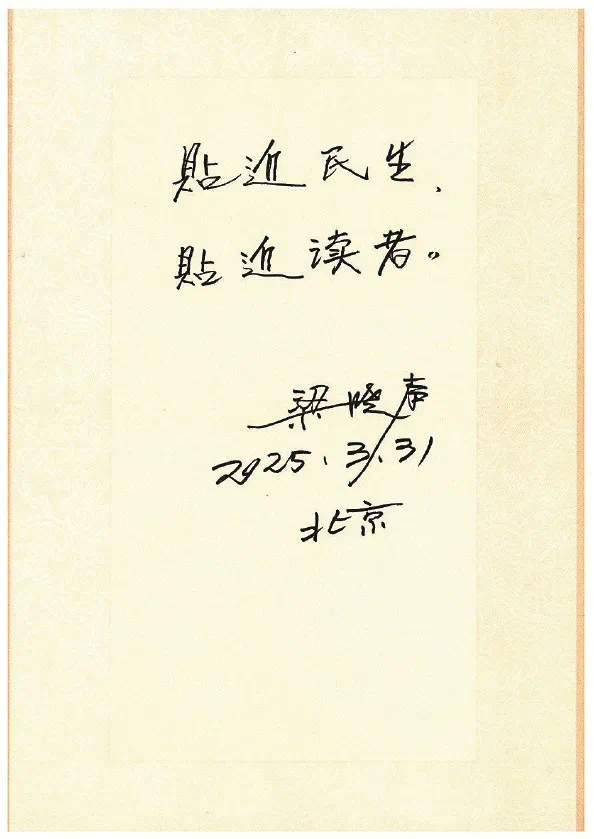 貼近民生,
貼近读者。
梁晓声
2025.3.31
北京